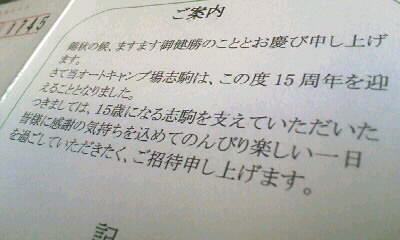 1145
ご案内
錦秋の候、ますます御健勝のこととお慶び申し上げ
ます。
さて当オートキャンプ場志駒は、この度15周年を迎
えることとなりました。
つきましては、15歳になる志駒を支えていただいた
皆様に感謝の気持ちを込めてのんびり楽しい一日
を過ごしていただきたく、ご招待申し上げます。
記